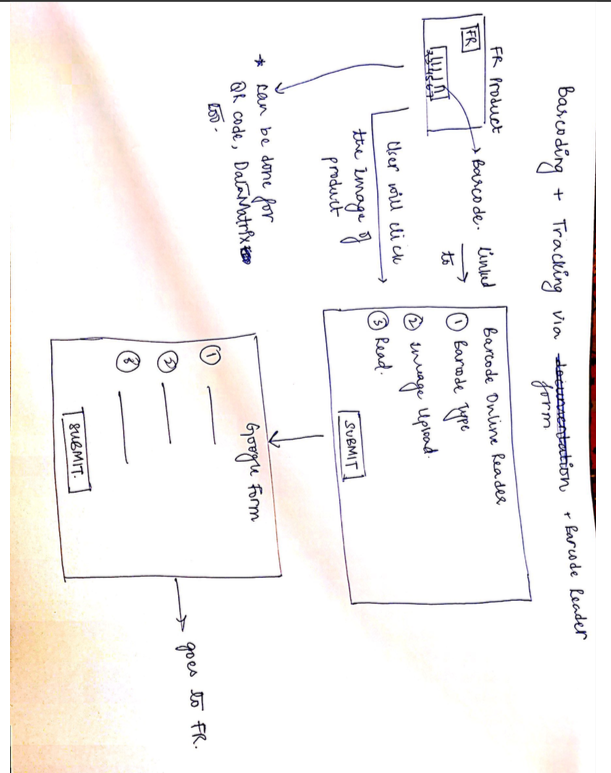 Barcoding + Tracking via documentation + Barcode Reader
form
FR Product
FR
Barcode. Linked
to
User will click
the Image of
product
* Can be done for
QR code, DataMatrix
too.
Barcode Online Reader
① Barcode Type
② Image Upload.
③ Read.
SUBMIT
Google Form
①
②
③
SUBMIT.
goes to FR.